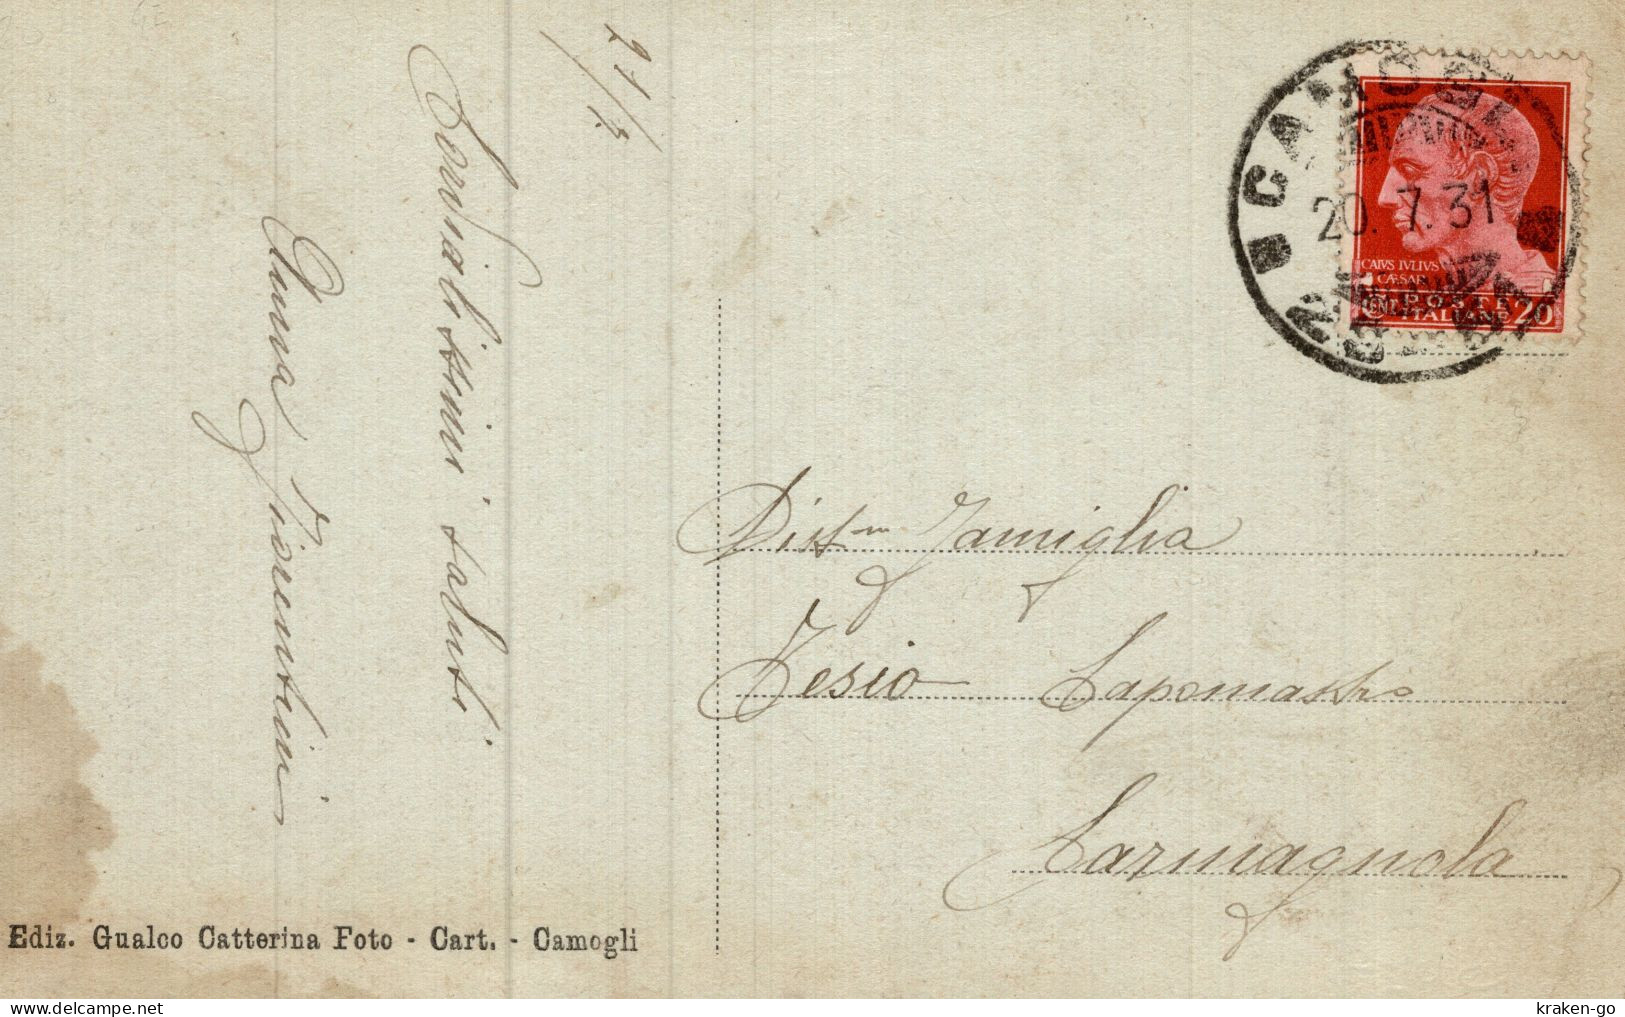 21/7
Cordialissimi saluti
Anna Fiorentini
CAMOGLI
20.7.31
CAIVS IVLIVS
CÆSAR
CENT. POSTE 20
ITALIANE
Distma Famiglia
Tesio Capomastro
Carmagnola
Ediz. Gualco Catterina Foto - Cart. - Camogli
kraken-go